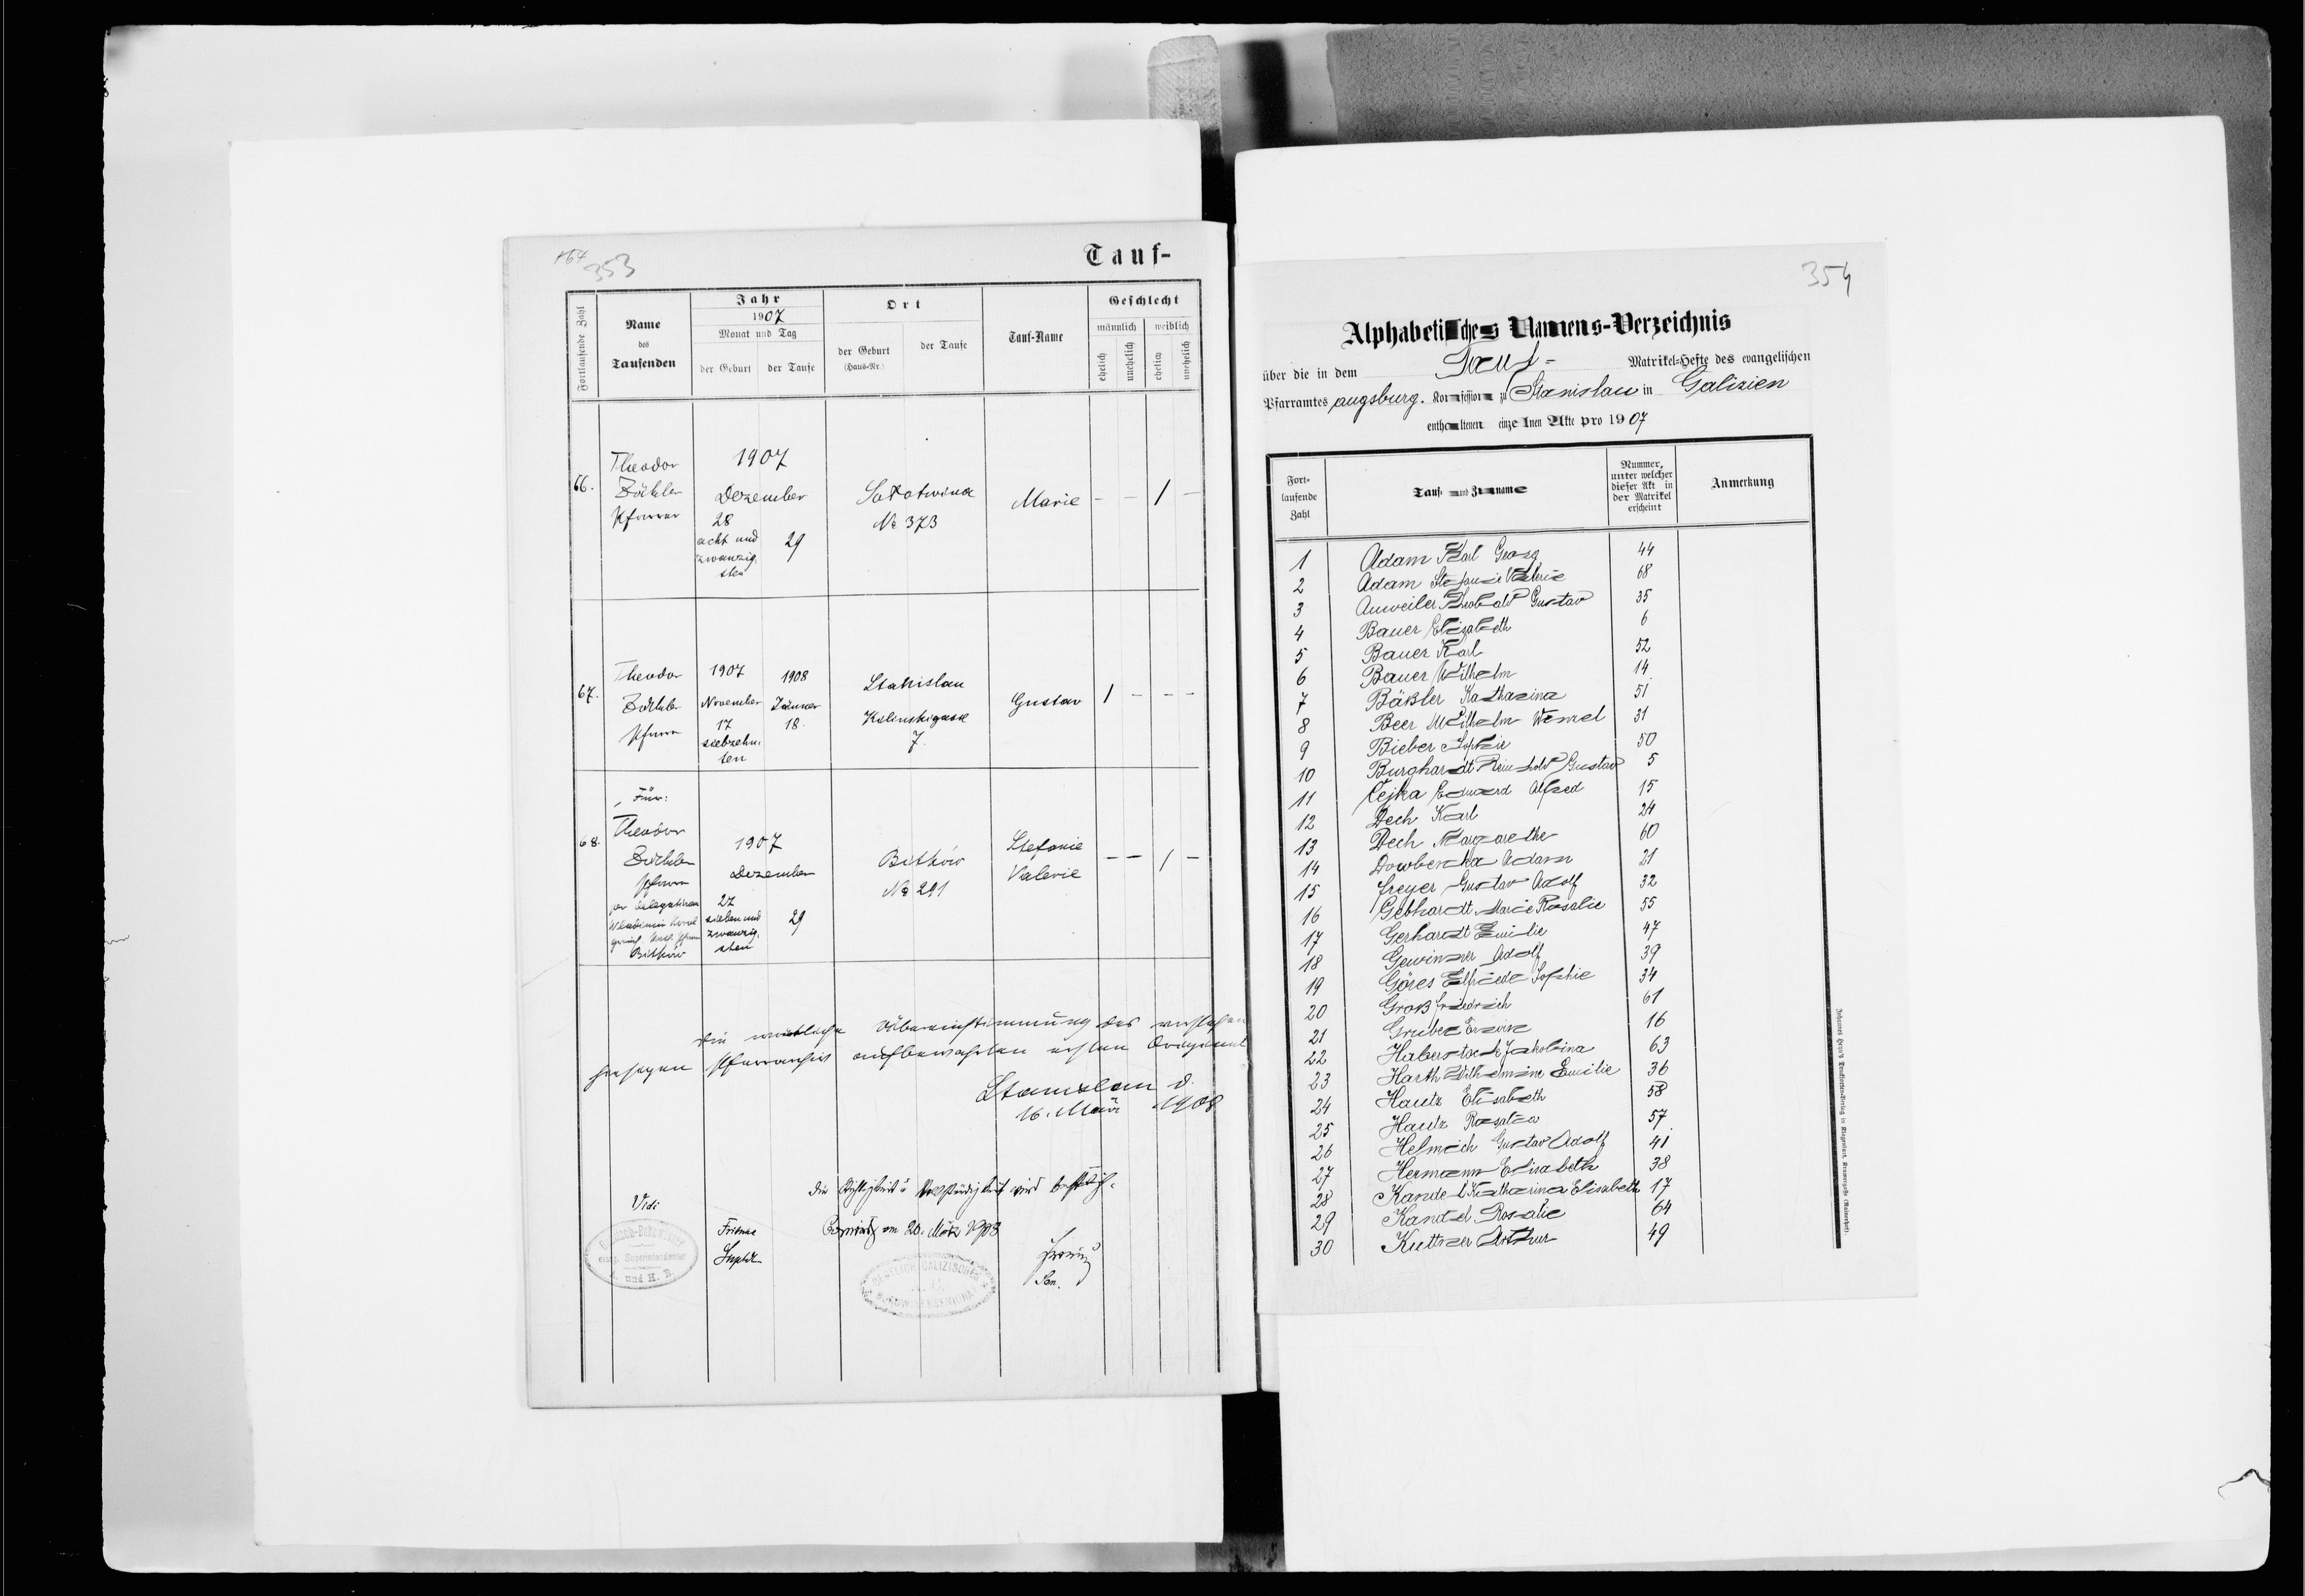 353
Tauf-
Fortlaufende Zahl
Name
des
Taufenden
Jahr
1907
Monat und Tag
der Geburt
der Taufe
Ort
der Geburt
(Haus-Nr.)
der Taufe
Tauf-Name
Geschlecht
männlich
weiblich
ehelich
unehelich
ehelich
unehelich
66.
Theodor
Zöckler
Pfarrer
1907
Dezember
28
acht und
zwanzig.
sten
29
Sołotwina
№ 373
Marie
- - / -
67.
Theodor
Zöckler
Pfarrer
1907
November
17
siebzehn.
ten
1908
Jänner
18.
Stanislau
Kalinskigasse
7.
Gustav
/ - - -
68.
Für:
Theodor
Zöckler
Pfarrer
per Delegationem
Bitków
1907
Dezember
27
sieben und
zwanzig.
sten
29
Bitków
№ 291
Stefanie
Valerie
- - / -
Die wörtliche Übereinstimmung des
Pfarrarchiv aufbewahrten ersten Original
Stanislau d.
16. März 1908
Die Richtigkeit u Vollständigkeit wird bestätigt.
am 20. März 1908
Vidi
Sen.
evang. Superintendentur
A. und H. B.
354
Alphabetisches Namens-Verzeichnis
über die in dem Tauf- Matrikel-Hefte des evangelischen
Pfarramtes augsburg. Konfession zu Stanislau in Galizien
enthaltenen einzelnen Akte pro 1907
Fort-
laufende
Zahl
Tauf- und Zuname
Nummer,
unter welcher
dieser Akt in
der Matrikel
erscheint
Anmerkung
1 Adam Karl Georg 44
2 Adam Stefanie Valerie 68
3 Auweiler Theobald Gustav 35
4 Bauer Elisabeth 6
5 Bauer Karl 52
6 Bauer Wilhelm 14
7 Bäßler Katharina 51
8 Beer Wilhelm Wenzel 31
9 Bieber Sophie 50
10 Burghardt Reinhold Gustav 5
11 Cejka Eduard Alfred 15
12 Dech Karl 24
13 Dech Margarethe 60
14 Dowbenka Adam 21
15 Freyer Gustav Adolf 32
16 Gebhardt Marie Rosalie 55
17 Gerhardt Emilie 47
18 Gewinner Adolf 39
19 Göres Elfriede Sophie 34
20 Groß Friedrich 61
21 Gruber Erwin 16
22 Haberstock Jakobina 63
23 Harth Wilhelmine Emilie 36
24 Hautz Elisabeth 58
25 Hautz Rosalia 57
26 Helmich Gustav Adolf 41
27 Hermann Elisabeth 38
28 Kandel Katharina Elisabeth 17
29 Kandel Rosalie 64
30 Kuttner Arthur 49